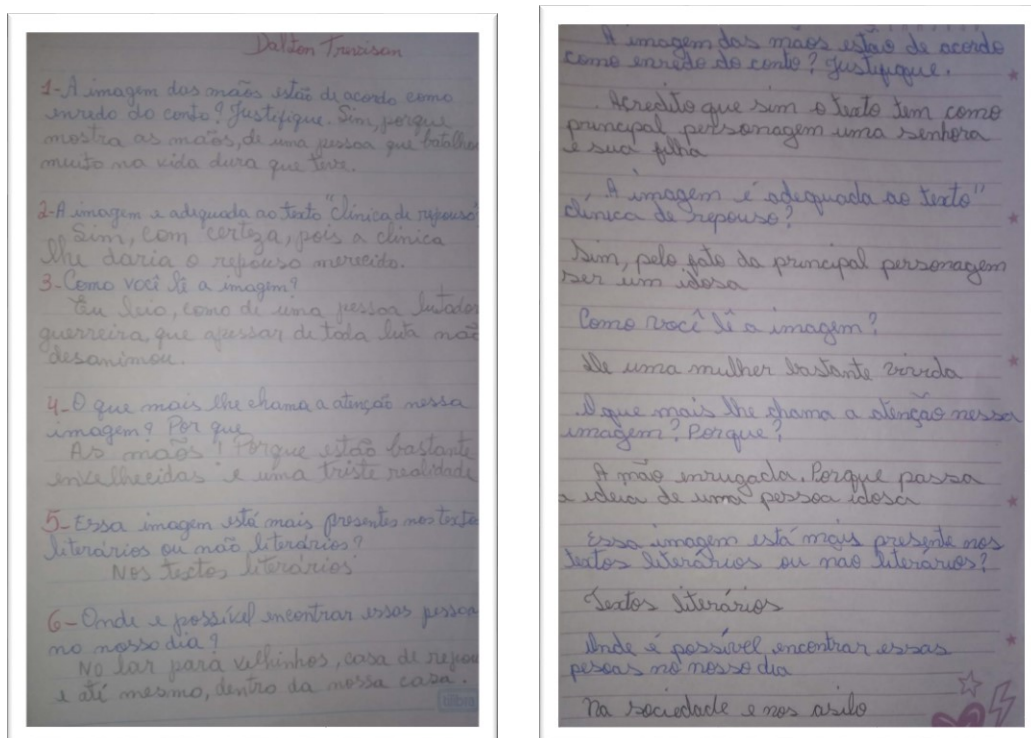 Dalton Trevisan
1-A imagem das mãos estão de acordo como
enredo do conto? Justifique. Sim, porque
mostra as mãos, de uma pessoa que batalhou
muito na vida dura que teve.
2-A imagem e adequada ao texto "clínica de repouso"
Sim, com certeza, pois a clínica
lhe daria o repouso merecido.
3-Como você lê a imagem?
Eu leio, como de uma pessoa lutador
guerreira, que apessar de toda luta não
desanimou.
4-O que mais lhe chama a atenção nessa
imagem? Por que
As mãos! Porque estão bastante
envelhecidas e uma triste realidade
5-Essa imagem está mais presentes nos texto
literários ou não literários?
Nos textos literários
6-Onde e possível encontrar essas pessoa
no nosso dia?
No lar para velhinhos, casa de repou
e até mesmo, dentro da nossa casa.
tilibra
A imagem das mãos estão de acordo
como enredo do conto? Justifique.
Acredito que sim o texto tem como
principal personagem uma senhora
e sua filha
A imagem é adequada ao texto"
clínica de repouso?
Sim, pelo fato da principal personagem
ser um idosa
Como você lê a imagem?
De uma mulher bastante vivida
O que mais lhe chama a atenção nessa
imagem? Porque?
A mão enrugada. Porque passa
a ideia de uma pessoa idosa
Essa imagem está mais presente nos
textos literários ou não literários?
Textos literários
Onde é possível encontrar essas
pesoas no nosso dia
Na sociedade e nos asilo